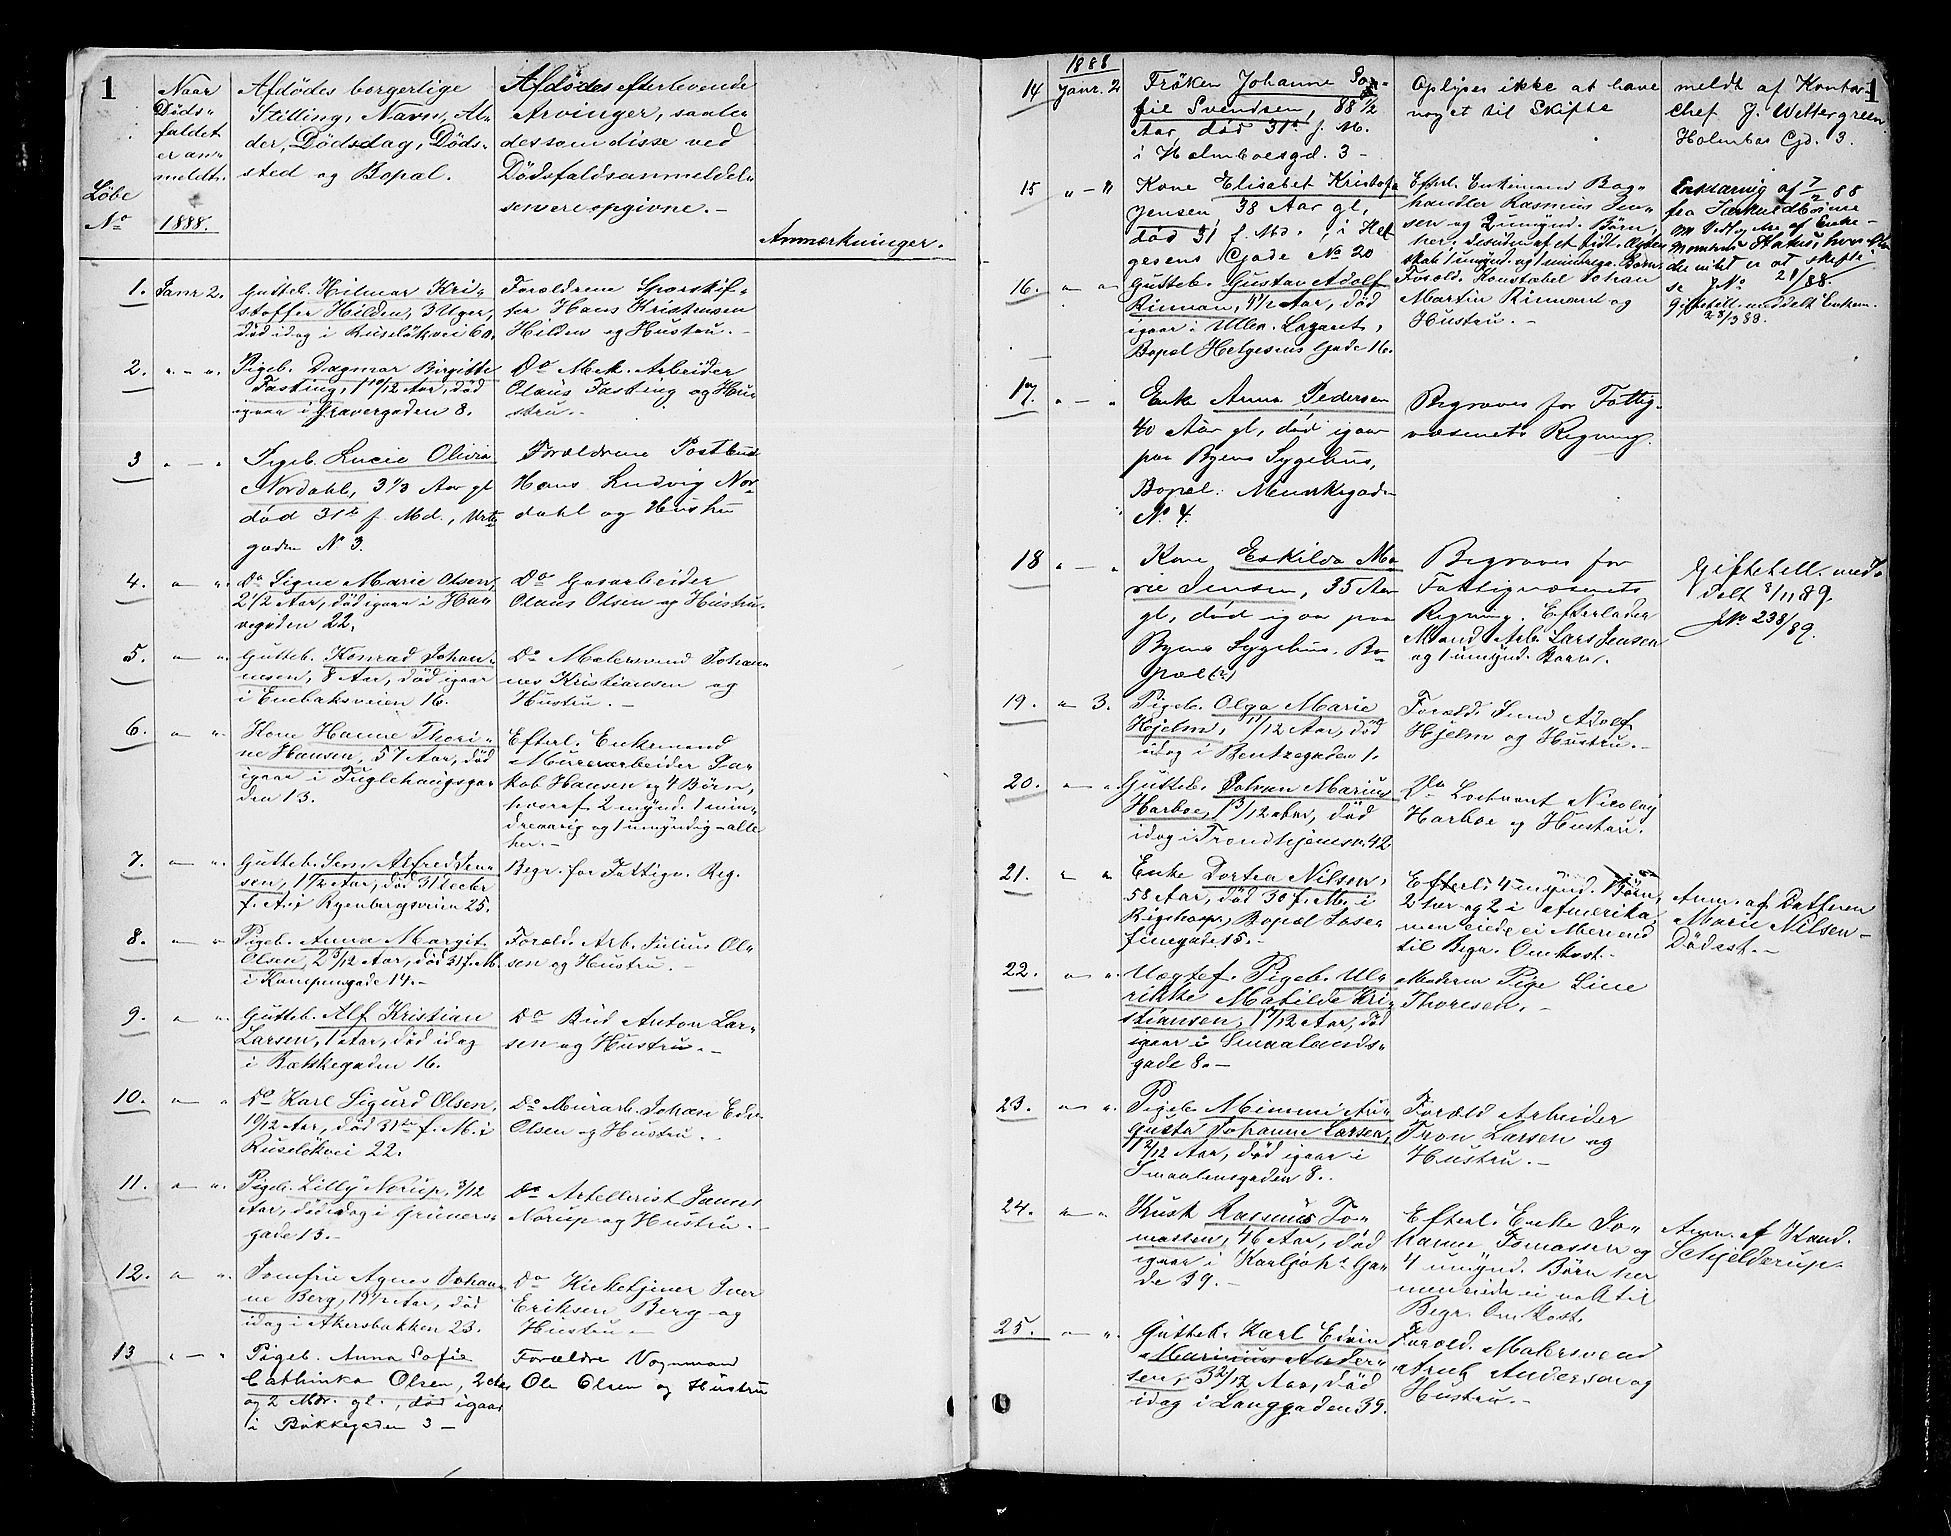 1
Naar
Döds-
faldet
er an-
meldt.
Löbe
No
1888.
Afdödes borgerlige
Stilling, Navn, Al-
der, Dödsdag, Döds-
sted og Bopæl.
Afdödes efterlevende
Arvinger, saale-
des som disse ved
Dödsfaldsanmeldel-
sen ere opgivne. -
Anmærkninger.
1. Janr 2. Gutteb. Hilmar Kri-
stoffer Hilden, 3 Uger,
död idag i Ruselökvei 60.
Forældrene
Hans Kristensen
Hilden og Hustru. -
2. " - " Pigeb. Dagmar Birgitte
Fasting, 1 10/12 Aar, död
igaar i Gravergaden 8.
Do Mek. Arbeider
Olaus Fasting og Hu-
stru. -
3 " - " Pigeb. Lucie Olivia
Nordahl, 3 1/3 Aar gl
död 31te f. Md., Urte-
gaden No 3.
Forældrene Postbud
Hans Ludvig Nor-
dahl og Hustru
4. " - " Do Signe Marie Olsen,
2 1/2 Aar, död igaar i Hau-
vegaden 22.
Do Gasarbeider
Olaus Olsen og Hustru.
5. " - " Gutteb. Konrad Johan-
nesen, 8 Aar, död igaar
i Enebaksveien 16.
Do Malersvend Johan-
nes Kristiansen og
Hustru. -
6. " - " Kone Hanne Thori-
ne Hansen, 57 Aar, död
igaar i Fuglehaugsga-
den 13.
Efterl. Enkemand
Murerarbeider Ja-
kob Hansen og 4 Börn,
hvoraf 2 mynd. 1 min-
dreaarig og 1 umyndig - alle
her. -
7. " - " Gutteb. Jens Alfred Jen-
sen, 1 1/2 Aar, död 31 Decbr
f. A. i Ryenbergsveien 25.
Begr. for Fattigv. Reg.
8. " - " Pigeb. Anna Margit
Olsen, 2 3/12 Aar, död 31 f. M.
i Kampengade 14. -
Foræld. Arb. Julius Ol-
sen og Hustru. -
9. " - " Gutteb. Alf Kristian
Larsen, 1 Aar, död idag
i Bækkegaden 16.
Do Bud Anton Lar-
sen og Hustru. -
10. " - " Do Karl Sigurd Olsen,
10/12 Aar, död 31te f. M. i
Ruselökvei 22.
Do Murarb. Johan Edv.
Olsen og Hustru. -
11. " - " Pigeb. Lilly Norup, 3/12
Aar, död idag i Grüners-
gade 13. -
Do Artellerist James
Norup og Hustru. -
12. " " Jomfru Agnes Johan-
ne Berg, 19 1/2 Aar, död
idag i Akersbakken 23.
Do Kirketjener Iver
Eriksen Berg og
Hustru -
13 " - " Pigeb. Anna Sofie
Cathinka Olsen, 2 Aar
og 2 Mdr. gl., död igaar
i Bökkegaden 3 -
Forældre Vognmand
Ole Olsen og Hustru
1888
1
14 Janr. 2 Fröken Johanne So-
fie Svendsen, 88 1/2
Aar, död 31te f. M.
i Holmboesgd. 3 -
Oplyses ikke at have
noget til Skifte
meldt af Kontor-
chef J. Wettergreen
Holmbos Gd. 3.
15 " - " Kone Elisabet Kristofa
Jensen, 38 Aar gl,
död 31 f. Md., i Hel-
gesens Gade No 20
Efterl. Enkemand Bog-
handler Rasmus Jen-
sen og 2 umynd. Börn,
her, desuden af et tidl. Ægte-
skab 1 umynd. og 1 mindreaa. Barn.
Erklæring af 7/2 88
fra
21/88.
Giftetill. meddelt Enkem.
16. " " Gutteb. Gustav Adolf
Rimann, 1 1/2 Aar, död
igaar i Ullev. Lazaret,
Bopæl Helgesens Gade 16.
Foræld. Konstabel Johan
Martin Rimann og
Hustru. -
17. " - " Enke Anna Pedersen
40 Aar gl, död igaar
paa Byens Sygehus,
Bopæl: Munkegaden
No 4.
Begraves for Fattig-
væsenets Regning.
18 " - " Kone Eskilda Ma-
rie Jensen, 35 Aar
gl, död igaar paa
Byens Sygehus, Bo-
pæl (?)
Begraves for
Fattigvæsenets
Regning. Efterlader
Mand Arb. Lars Jensen
og 1 umynd. Barn.
Giftetill. med-
delt 8/11 89.
JNo 238/89.
19. " 3. Pigeb. Olga Marie
Hjelm, 11/12 Aar, död
idag i Bentzegaden 1.
Foræld. Smed Adolf
Hjelm og Hustru. -
20. " - " Gutteb. Johan Marius
Harboe, 1 3/12 Aar, död
idag i Trondhjemsv. 42
Do Löitnant Nicolay
Harboe og Hustru.
21. " " Enke Dortea Nilsen,
58 Aar, död 30 f. M. i
Rigshosp., Bopæl Jose-
finegade 15. -
Efterl. 4 mynd. Börn,
2 her og 2 i Amerika,
men eiede ei Mere end
til Begr. Omkost. -
Anm. af Datteren
Marie Nilsen -
Dödsat. -
22. " - " Uægtef. Pigeb. Ul-
rikke Matilde Kri-
stiansen, 1 7/12 Aar, död
igaar i Smaalends-
gade 8. -
Moderen Pige Line
Thoresen. -
23. " - " Pigeb. Mimmi Au-
gusta Johanne Larsen,
1 2/12 Aar, död igaar i
Smaalensgaden 8.
Foræld Arbeider
Tron Larsen og
Hustru. -
24. " - " Kusk Rasmus To-
massen, 46 Aar, död
igaar i Karljohs Ga-
de 39. -
Efterl. Enke Jo-
hanne Tomassen og
4 umynd. Börn her
men eiede ei nok til
Begr. Omkost.
Anm. af Kand.
Schjelderup.
25. " - " Gutteb. Karl Edvin
Marinius Ander-
sen, 3 2/12 Aar, död
idag i Langgaden 39.
Foræld. Malersvend
Arnt Andersen og
Hustru. -